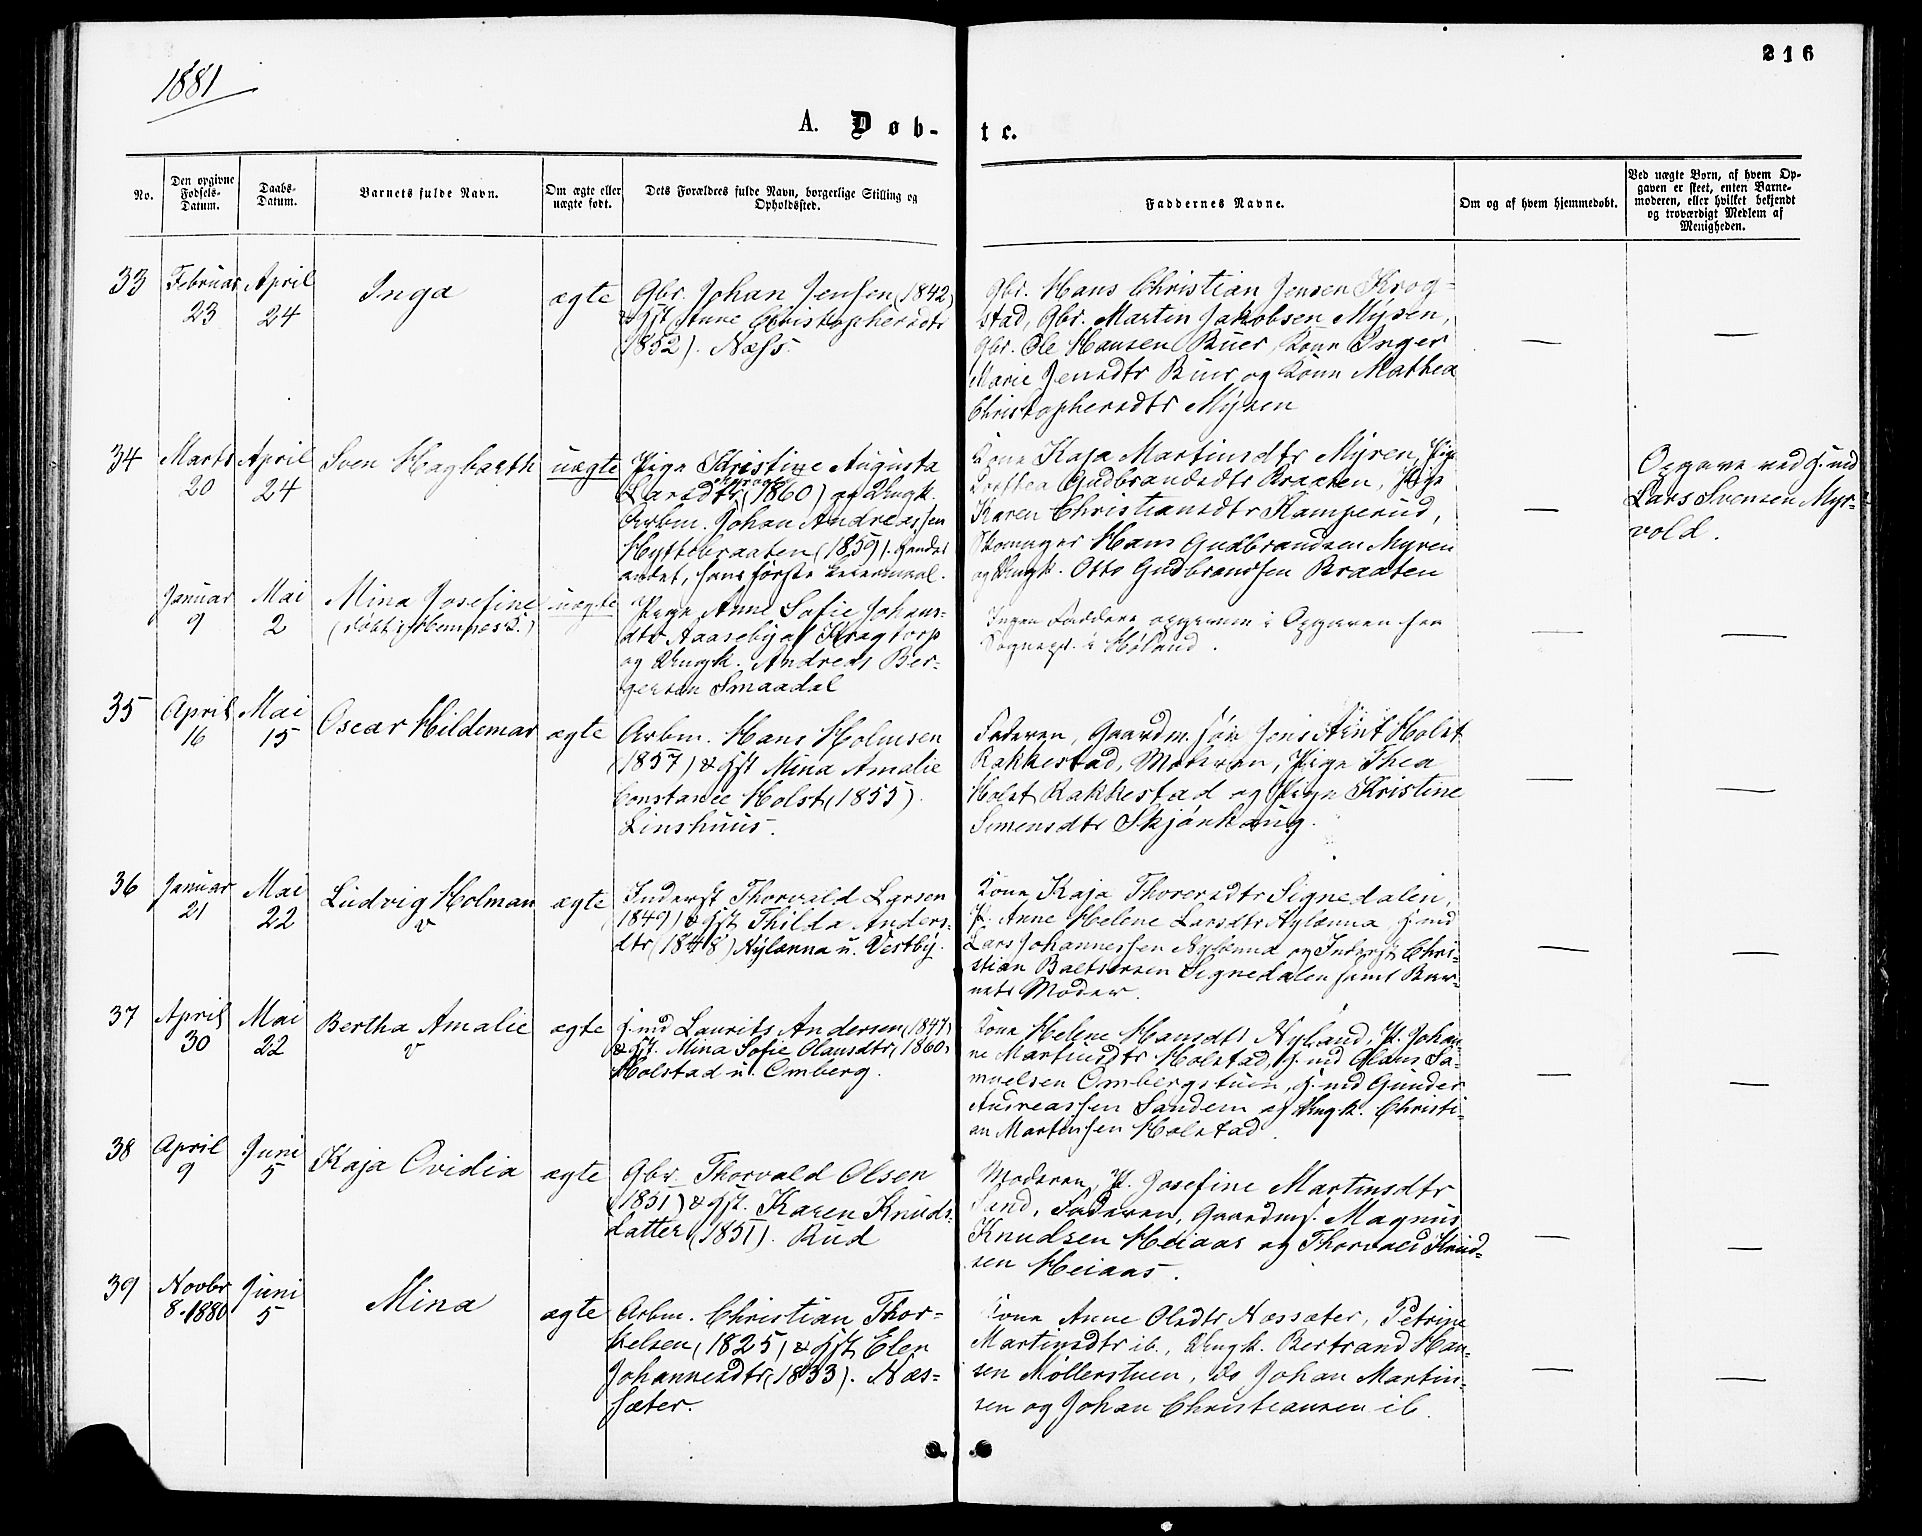 1881
216
A. Døb-
te.
No.
Den opgivne Fødsels-Datum.
Daabs-Datum.
Barnets fulde Navn.
Om ægte eller uægte født.
Dets Forældres fulde Navn, borgerlige Stilling og Opholdssted.
Faddernes Navne.
Om og af hvem hjemmedøbt.
Ved uægte Børn, af hvem Op-
gaven er skeet, enten Barne-
moderen, eller hvilket bekjendt
og troværdigt Medlem af
Menigheden.
33
Februar 23
April 24
Inga
ægte
Gbr. Johan Jensen (1842)
& Hst. Anne Christophersdtr
(1852). Næss.
Gbr. Hans Christian Jensen Krog-
stad, Gbr. Martin Jakobsen Mysen,
Gbr. Ole Hansen Buer, Kone Inger
Marie Jensdtr Buer og Kone Mathea
Christophersdtr Mysen
—
—
34
Marts 20
April 24
Sven Hagbarth
uægte
Pige Christine Augusta
Larsdtr (1860) og Ungk.
Arbm. Johan Andreassen
Hyttebraaten (1859). Hendes
andet, hans første Leiermaal.
Kone Kaja Martinsdtr Myren, Pige
Dorthea Gudbrandsdtr Braaten, Pige
Karen Christiansdtr Kamperud,
Skomager Hans Gudbrandsen Myren
og Ungk. Otto Gudbrandsen Braaten
—
Opgave ved H.md
Lars Svensen Myr-
vold.
Januar 9
Mai 2
Mina Josefine
(døbt i Hemnes)
uægte
Pige Anne Sofie Johans-
dtr Aasebyal Kragtorp
og Ungk. Andreas Ber-
gersen Smaadal
Ingen Faddere opgivne i Opgaven fra
Sognepr. i Høland.
—
—
35
April 16
Mai 15
Oscar Hildemar
ægte
Arbm. Hans Holmsen
(1857) & Hst Mina Amalie
Constance Holst (1855).
Linshuus.
Faderen, Gaardm. søn Jens Arnt Holst
Rakkestad, Moderen, Pige Thea
Holst Rakkestad og Pige Kristine
Simensdtr Skjønhaug.
—
—
36
Januar 21
Mai 22
Ludvig Holman
v
ægte
Inderst Thorvald Larsen
(1849) & Hst Thilda Anders-
dtr (1848) Nylænna u. Vestby.
Kone Kaja Thoresdtr Signedalen,
P. Anne Helene Larsdtr Nylænna H.md
Lars Johannessen Nylænna og Inderst Chri-
stian Baltsersen Signedalen samt Bar-
nets Moder.
—
—
37
April 30
Mai 22
Bertha Amalie
v
ægte
H.md Laurits Andersen (1847)
& Hst. Mina Sofie Olausdtr (1860)
Holstad u. Omberg.
Kone Helene Hansdtr Nyland, P. Johan-
ne Martinsdtr Holstad, H.md Olaus Sa-
muelsen Ombergstuen, H.md Gunder
Andreassen Sandem og Ungk. Christi-
an Martinsen Holstad.
—
—
38
April 9
Juni 5
Kaja Ovidia
ægte
Gbr. Thorvald Olsen
(1851) & Hst. Karen Knuds-
datter (1851). Rud
Moderen, P. Josefine Martinsdtr
Sand, Faderen, Gaardms. Magnus
Knudsen Heiaas og Thorvald Knud-
sen Heiaas.
—
—
39
Novbr 8. 1880
Juni 5
Mina
ægte
Arbm. Christian Thor-
kelsen (1825) & Hst Elen
Johannesdtr (1833). Næs-
sæter.
Kone Anne Olsdtr Næssæter, Petrine
Martinsdtr ib., Ungk. Bertrand Han-
sen Møllerstuen, Do Johan Martin-
sen og Johan Christiansen ib.
—
—